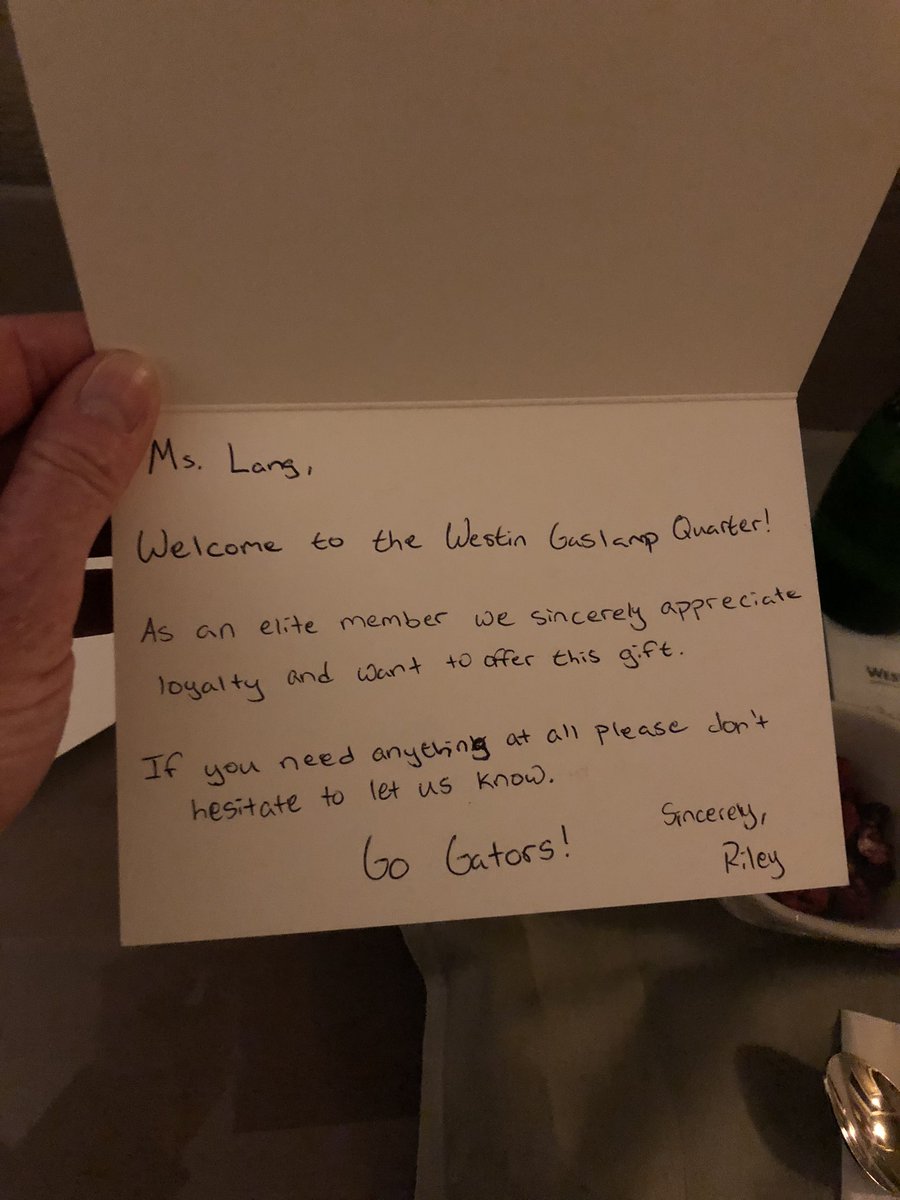 Ms. Lang,
Welcome to the Westin Gaslamp Quarter!
As an elite member we sincerely appreciate
loyalty and want to offer this gift.
If you need anything at all please don't
hesitate to let us know.
Go Gators!
Sincerely,
Riley